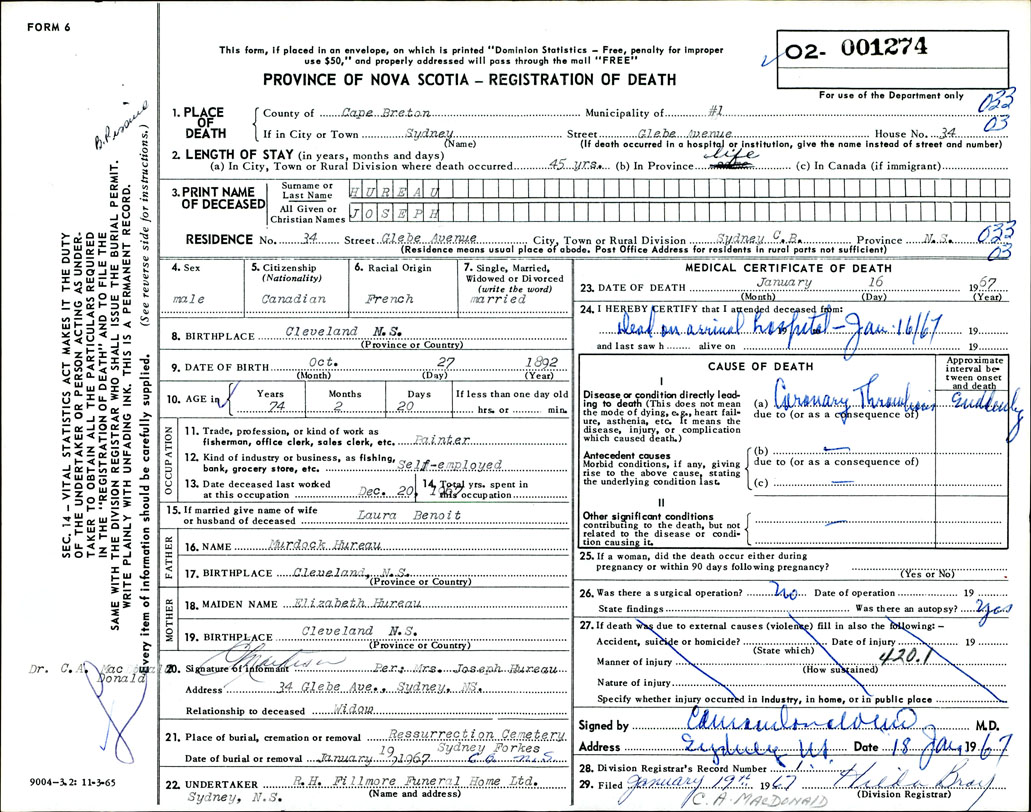 FORM 6
This form, if placed in an envelope, on which is printed "Dominion Statistics – Free, penalty for improper
use $50," and properly addressed will pass through the mail "FREE"
PROVINCE OF NOVA SCOTIA – REGISTRATION OF DEATH
02- 001274
For use of the Department only
033
03
1. PLACE OF DEATH County of Cape Breton Municipality of #1
If in City or Town Sydney Street Glebe Avenue House No. 34
(Name) (If death occurred in a hospital or institution, give the name instead of street and number)
2. LENGTH OF STAY (in years, months and days)
(a) In City, Town or Rural Division where death occurred 45 yrs. (b) In Province life (c) In Canada (if immigrant)
3. PRINT NAME OF DECEASED Surname or Last Name HUREAU
All Given or Christian Names JOSEPH
RESIDENCE No. 34 Street Glebe Avenue City, Town or Rural Division Sydney C.B. Province N.S.
(Residence means usual place of abode. Post Office Address for residents in rural parts not sufficient)
033
03
4. Sex male
5. Citizenship (Nationality) Canadian
6. Racial Origin French
7. Single, Married, Widowed or Divorced (write the word) married
8. BIRTHPLACE Cleveland N.S.
(Province or Country)
9. DATE OF BIRTH Oct. 27 1892
(Month) (Day) (Year)
10. AGE in Years 74 Months 2 Days 20 If less than one day old hrs. or min.
OCCUPATION
11. Trade, profession, or kind of work as
fisherman, office clerk, sales clerk, etc. Painter
12. Kind of industry or business, as fishing,
bank, grocery store, etc. Self-employed
13. Date deceased last worked at this occupation Dec. 20, 1967
14. Total yrs. spent in this occupation
15. If married give name of wife
or husband of deceased Laura Benoit
FATHER
16. NAME Murdock Hureau
17. BIRTHPLACE Cleveland, N.S.
(Province or Country)
MOTHER
18. MAIDEN NAME Elizabeth Hureau
19. BIRTHPLACE Cleveland N.S.
(Province or Country)
20. Signature of informant Per: Mrs. Joseph Hureau
Address 34 Glebe Ave., Sydney, NS.
Relationship to deceased Widow
21. Place of burial, cremation or removal Ressurrection Cemetery
Sydney Forkes
Date of burial or removal January 19, 1967 C.B. N.S.
22. UNDERTAKER R.H. Fillmore Funeral Home Ltd.
Sydney, N.S. (Name and address)
MEDICAL CERTIFICATE OF DEATH
23. DATE OF DEATH January 16 1967
(Month) (Day) (Year)
24. I HEREBY CERTIFY that I attended deceased from:
Dead on arrival hospital – Jan. 16/67 19
and last saw h alive on 19
CAUSE OF DEATH
Approximate interval between onset and death
I
Disease or condition directly leading to death (This does not mean the mode of dying, e.g., heart failure, asthenia, etc. It means the disease, injury, or complication which caused death.)
(a) Coronary Thrombosis Suddenly
due to (or as a consequence of)
Antecedent causes
Morbid conditions, if any, giving rise to the above cause, stating the underlying condition last.
(b) —
due to (or as a consequence of)
(c) —
II
Other significant conditions
contributing to the death, but not related to the disease or condition causing it. —
25. If a woman, did the death occur either during
pregnancy or within 90 days following pregnancy?
(Yes or No)
26. Was there a surgical operation? No Date of operation 19
State findings Was there an autopsy? Yes
27. If death was due to external causes (violence) fill in also the following: –
Accident, suicide or homicide? Date of injury 19
(State which)
Manner of injury 420.1
(How sustained)
Nature of injury
Specify whether injury occurred in Industry, in home, or in public place
Signed by M.D.
Address Sydney Date 18 Jan 1967
28. Division Registrar's Record Number
29. Filed January 19th 1967 Hilda Bray
(Division Registrar)
C. A. MACDONALD
SEC. 14 – VITAL STATISTICS ACT MAKES IT THE DUTY
OF THE UNDERTAKER OR PERSON ACTING AS UNDER-
TAKER TO OBTAIN ALL THE PARTICULARS REQUIRED
IN THE "REGISTRATION OF DEATH" AND TO FILE THE
SAME WITH THE DIVISION REGISTRAR WHO SHALL ISSUE THE BURIAL PERMIT.
WRITE PLAINLY WITH UNFADING INK. THIS IS A PERMANENT RECORD.
Every item of information should be carefully supplied. (See reverse side for instructions.)
Dr. C.A. MacDonald
9004-3.2: 11-3-65